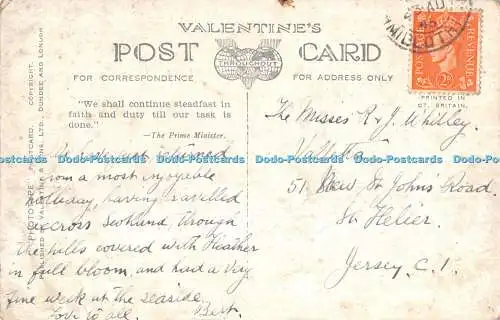 VALENTINE'S
POST CARD
THROUGHOUT
FOR CORRESPONDENCE
FOR ADDRESS ONLY
POSTAGE
REVENUE
PRINTED IN
GT. BRITAIN.
"We shall continue steadfast in
faith and duty till our task is
done."
—The Prime Minister.
We have just returned
from a most enjoyable
holiday, having travelled
across Scotland, through
the hills covered with Heather
in full bloom, and had a very
fine week at the seaside
Love to all. Bert.
The Misses R & J Whitley.
51. New St John's Road.
St Helier.
Jersey. C.I.
COPYRIGHT.
POSTCARD.
VALENTINE & SONS, LTD., DUNDEE AND LONDON
D-Postcards D-Postcards D-Postcards D-Postcards D-Postcards D-Postcards